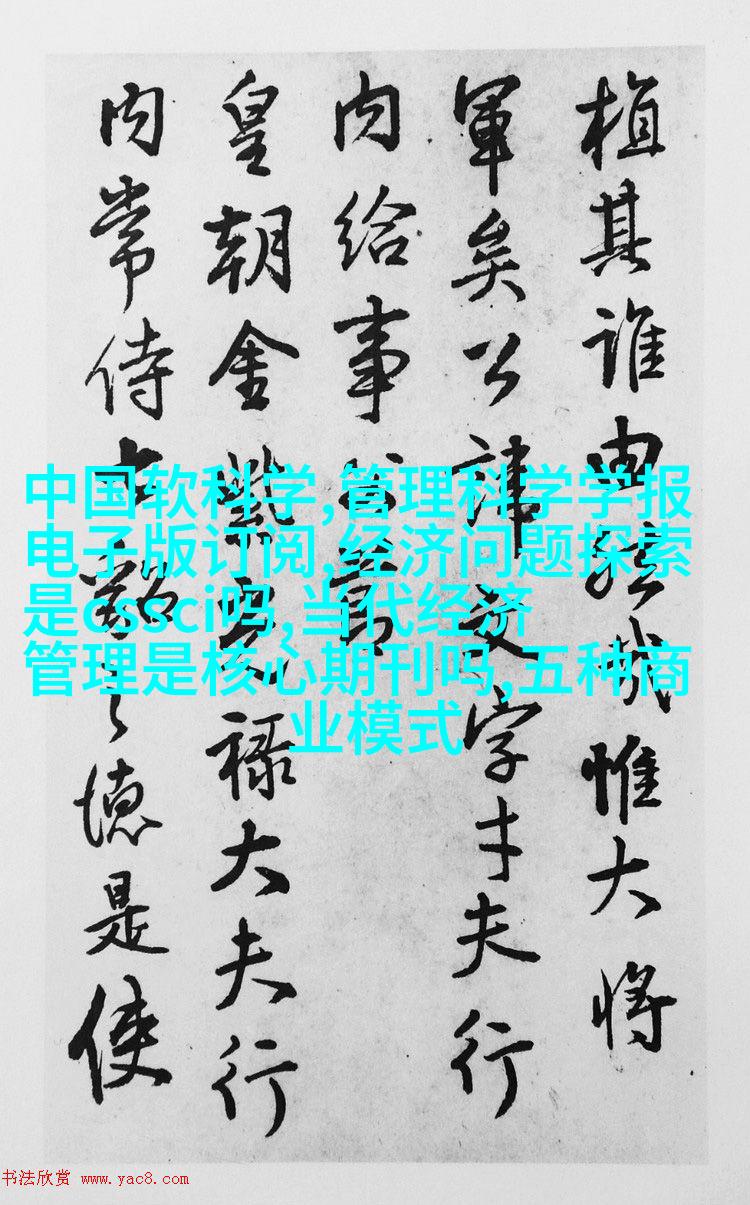 植其誰由哉惟大將
軍矣公諱文字才夫行
内給事
皇朝金紫光祿大夫行
内常侍之德是使
中国软科学,管理科学学报
电子版订阅,经济问题探索
是cssci吗,当代经济
管理是核心期刊吗,五种商
业模式
书法欣赏 www.yac8.com